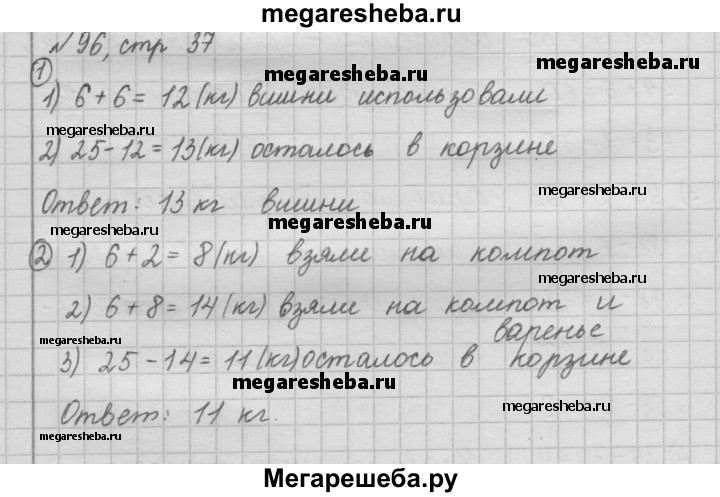 megaresheba.ru
№96, стр 37
megaresheba.ru
①
1) 6+6=12(кг) вишни использовали
megaresheba.ru
2) 25-12=13(кг) осталось в корзине
megaresheba.ru
Ответ: 13 кг вишни
megaresheba.ru
megaresheba.ru
② 1) 6+2=8(кг) взяли на компот
megaresheba.ru
2) 6+8=14(кг) взяли на компот и
варенье
megaresheba.ru
3) 25-14=11(кг) осталось в корзине
megaresheba.ru
Ответ: 11 кг.
megaresheba.ru
megaresheba.ru
Мегарешеба.ру